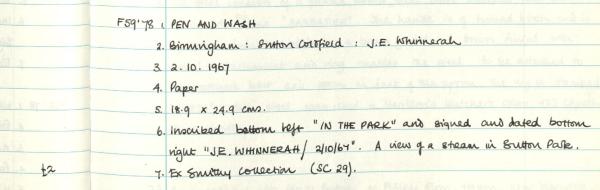 F59'78 1. PEN AND WASH
2. Birmingham : Sutton Coldfield : J.E. Whinnerah
3. 2.10.1967
4. Paper
5. 18.9 x 24.9 cms.
6. Inscribed bottom left "IN THE PARK" and signed and dated bottom
right "J.E. WHINNERAH / 2/10/67". A view of a stream in Sutton Park.
£2 7. Ex Smithy Collection (SC 29).